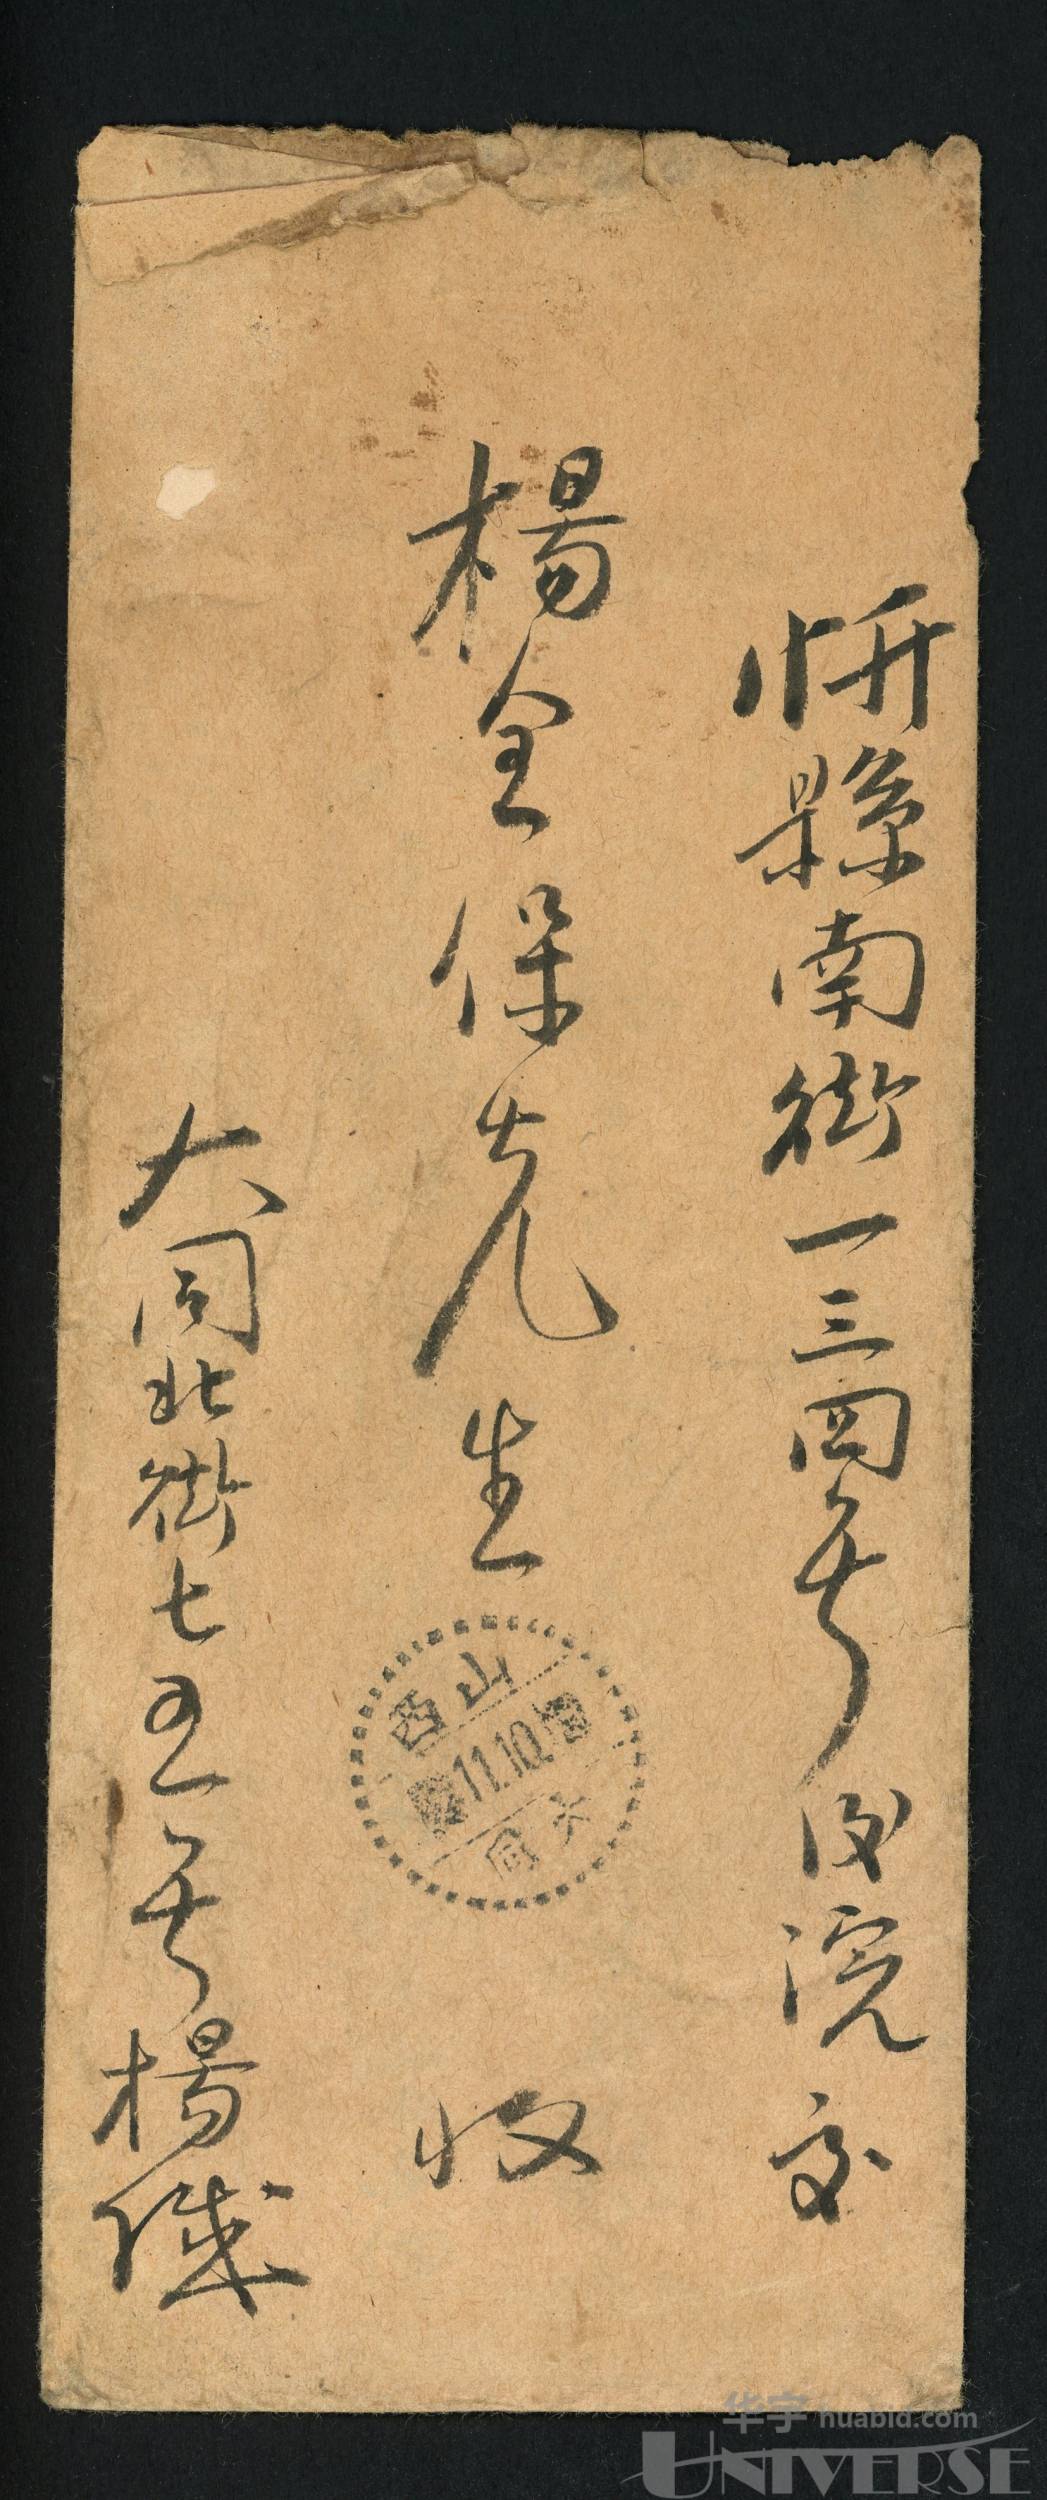 忻縣南街一三四号内院交
楊全保先生 收
山西
11.10
大同
大同北街七五号楊缄
华宇 huabid.com
UNIVERSE